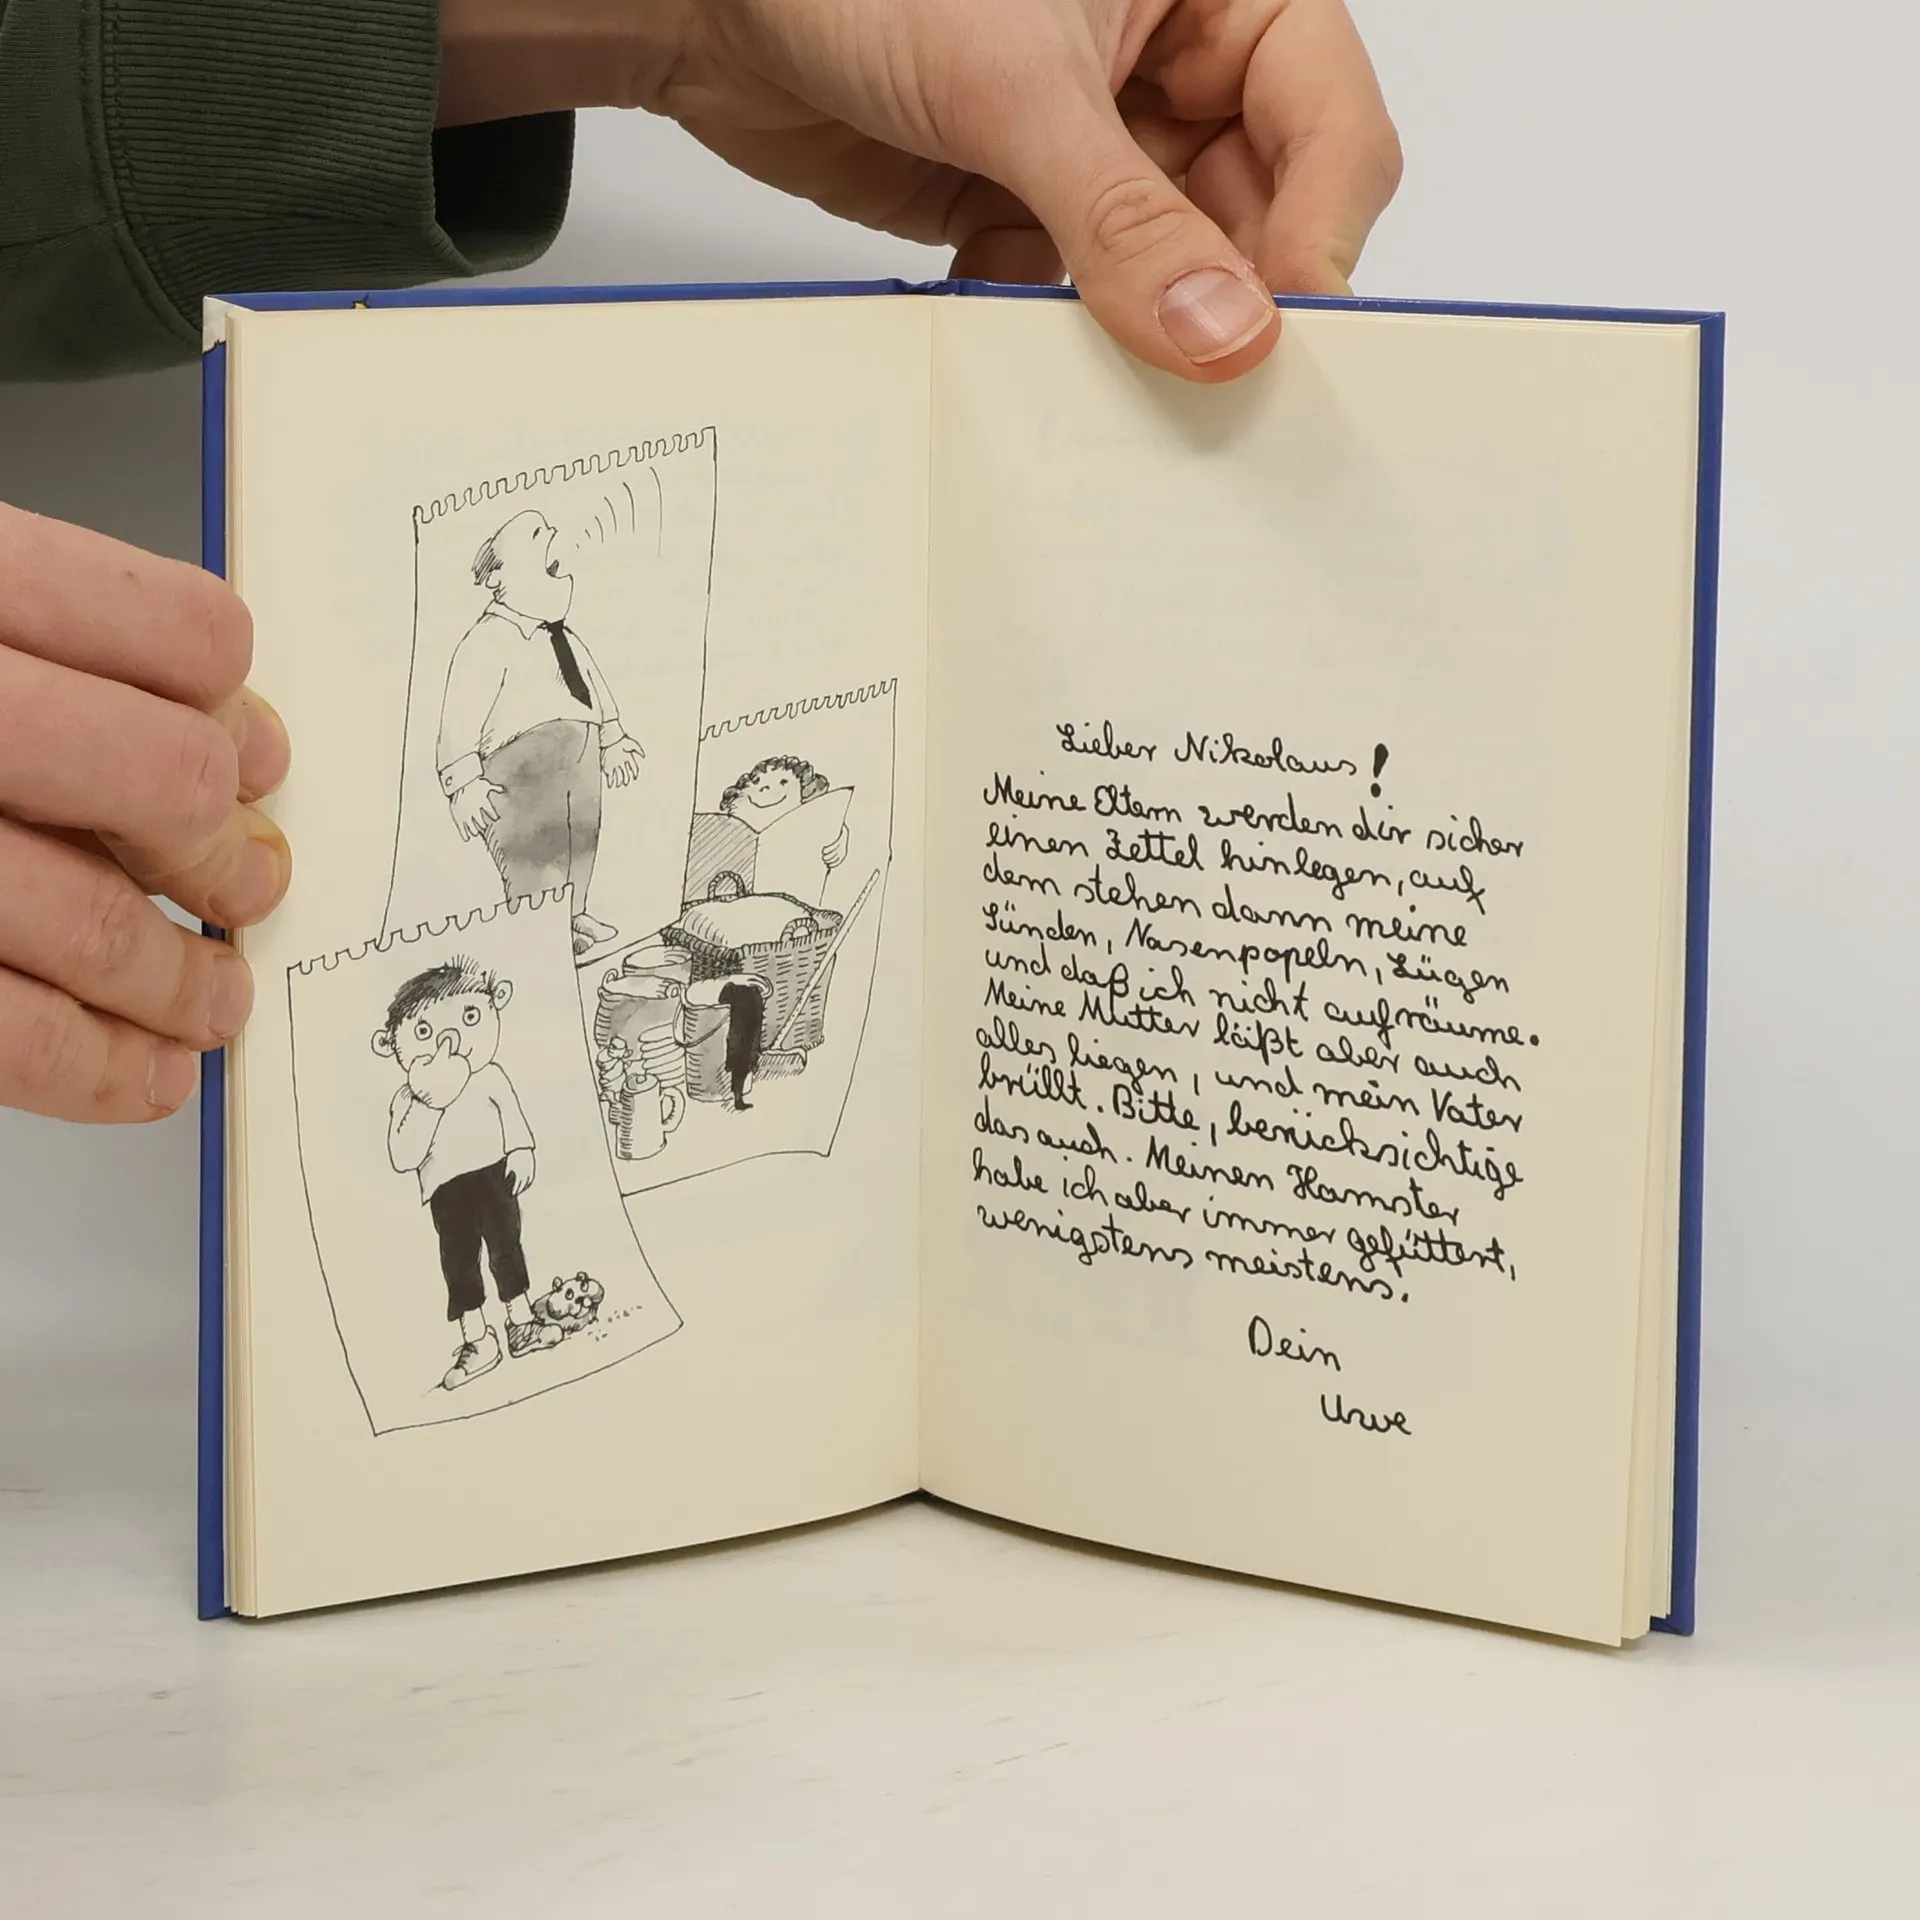 Lieber Nikolaus!
Meine Eltern werden dir sicher
einen Zettel hinlegen, auf
dem stehen dann meine
Sünden, Nasenpopeln, Lügen
und daß ich nicht aufräume.
Meine Mutter läßt aber auch
alles liegen, und mein Vater
brüllt. Bitte, berücksichtige
das auch. Meinen Hamster
habe ich aber immer gefüttert,
wenigstens meistens.
Dein
Uwe